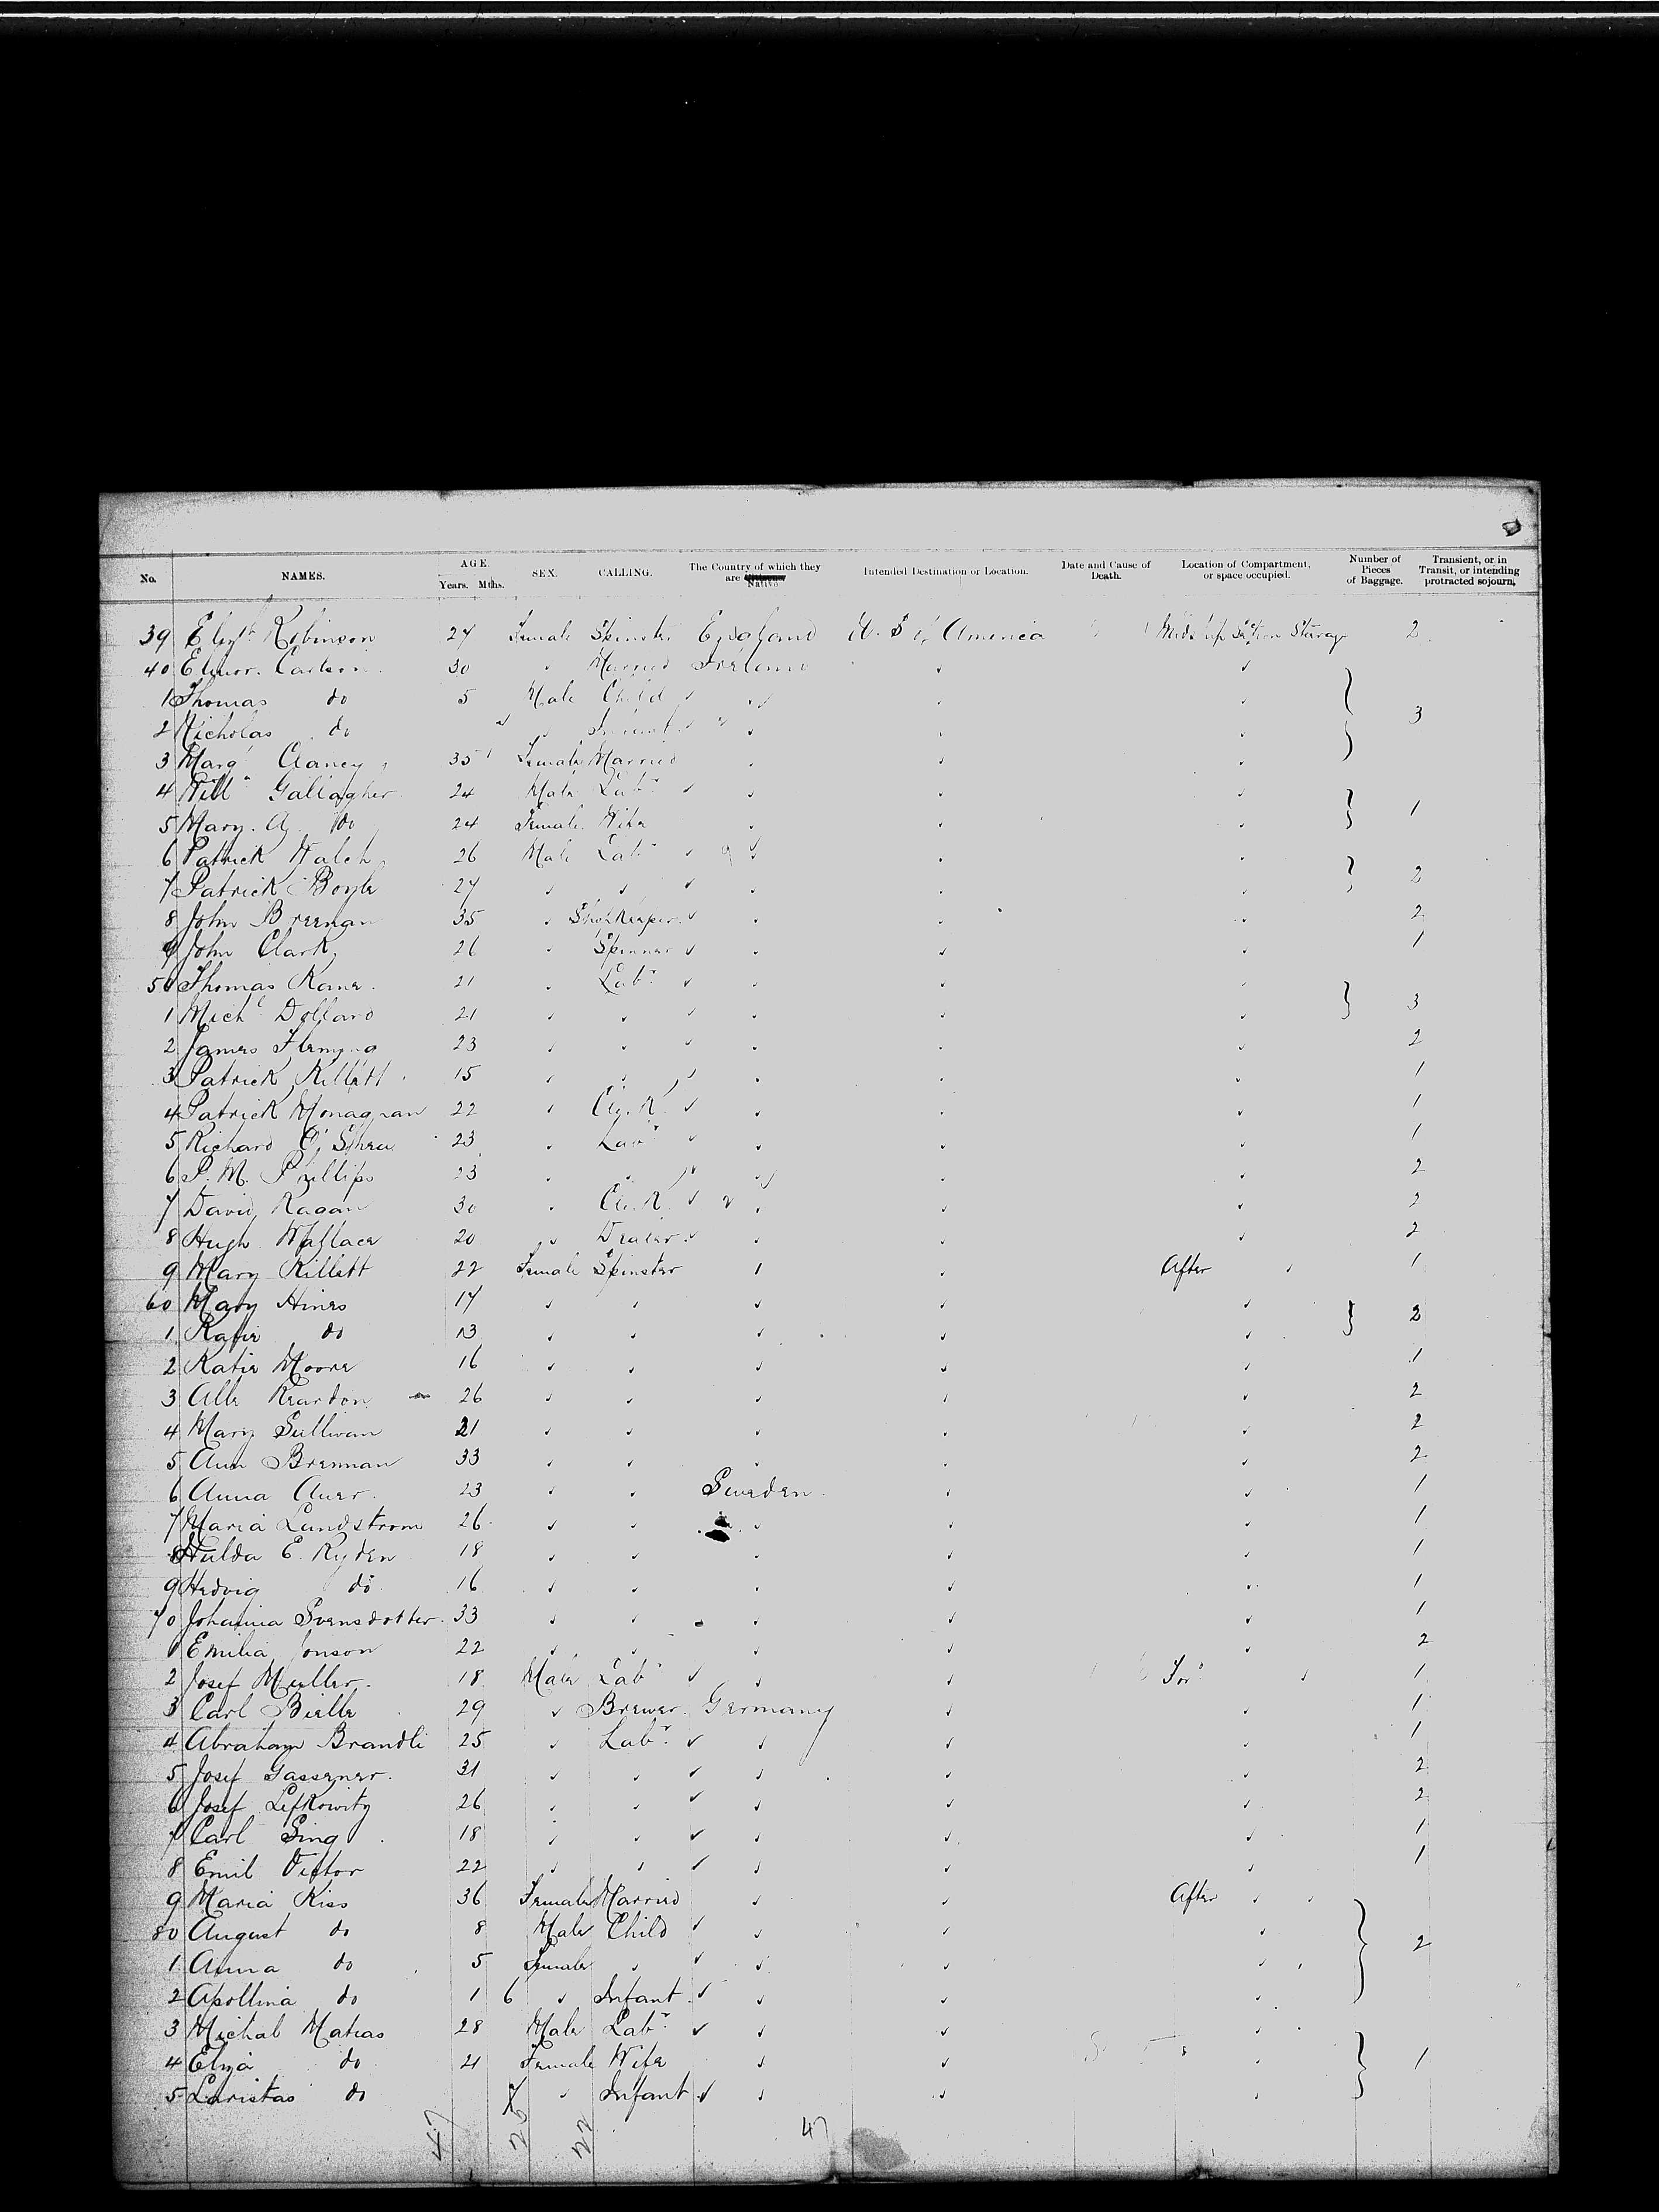 No. NAMES. AGE. Years. Mths. SEX. CALLING. The Country of which they are Native Intended Destination or Location. Date and Cause of Death. Location of Compartment, or space occupied. Number of Pieces of Baggage. Transient, or in Transit, or intending protracted sojourn.
39 Elizth Robinson 27 Female Spinster England U. S of America Midship Section Sterage 2
40 Elinor Carlson 30 " Married Ireland " "
1 Thomas do 5 Male Child " " "
2 Nicholas do " Infant " " " 3
3 Margt Clancy 35 Female Married " " "
4 Willm Gallagher 24 Male Labr " " "
5 Mary A do 24 Female Wife " " " 1
6 Patrick Walch 26 Male Labr " " "
7 Patrick Boyle 27 " " " " " 2
8 John Breenan 35 " Shopkeeper " " " 2
9 John Clark 26 " Spinner " " " 1
50 Thomas Kane 21 " Labr " " "
1 Michl Dollard 21 " " " " " 3
2 James Fleming 23 " " " " " 2
3 Patrick Killett 15 " " " " " 1
4 Patrick Monaghan 22 " Clerk " " " 1
5 Richard O'Shea 23 " Labr " " " 1
6 P. M. Phillips 23 " " " " " 2
7 David Kagan 30 " Clerk " " " 2
8 Hugh Wallace 20 " " " " 2
9 Mary Killett 22 Female Spinster " " After " 1
60 Mary Hines 17 " " " " "
1 Katie do 13 " " " " " 2
2 Katie Moore 16 " " " " " 1
3 Alle Reardon 26 " " " " " 2
4 Mary Sullivan 21 " " " " " 2
5 Ann Brennan 33 " " " " " 2
6 Anna Auer 23 " " Sweden " " 1
7 Maria Lundstrom 26 " " " " " 1
8 Hulda E. Ryden 18 " " " " " 1
9 Hedvig do 16 " " " " " 1
70 Johanna Svensdotter 33 " " " " " 1
1 Emilia Jonson 22 " " " " " 2
2 Josef Muller 18 Male Labr " " For " 1
3 Carl Bielle 29 " Brewer Germany " " 1
4 Abraham Brandli 25 " Labr " " " 1
5 Josef Gassener 31 " " " " " 2
6 Josef Lefkowitz 26 " " " " " 2
7 Carl Sing 18 " " " " " 1
8 Emil Victor 22 " " " " " 1
9 Maria Kiss 36 Female Married " " After "
80 August do 8 Male Child " " " 2
1 Anna do 5 Female " " " "
2 Apollina do 1 6 " Infant " " "
3 Michal Matias 28 Male Labr " " "
4 Elza do 21 Female Wife " " " 1
5 do 7 " Infant " " "
47 25 22 47